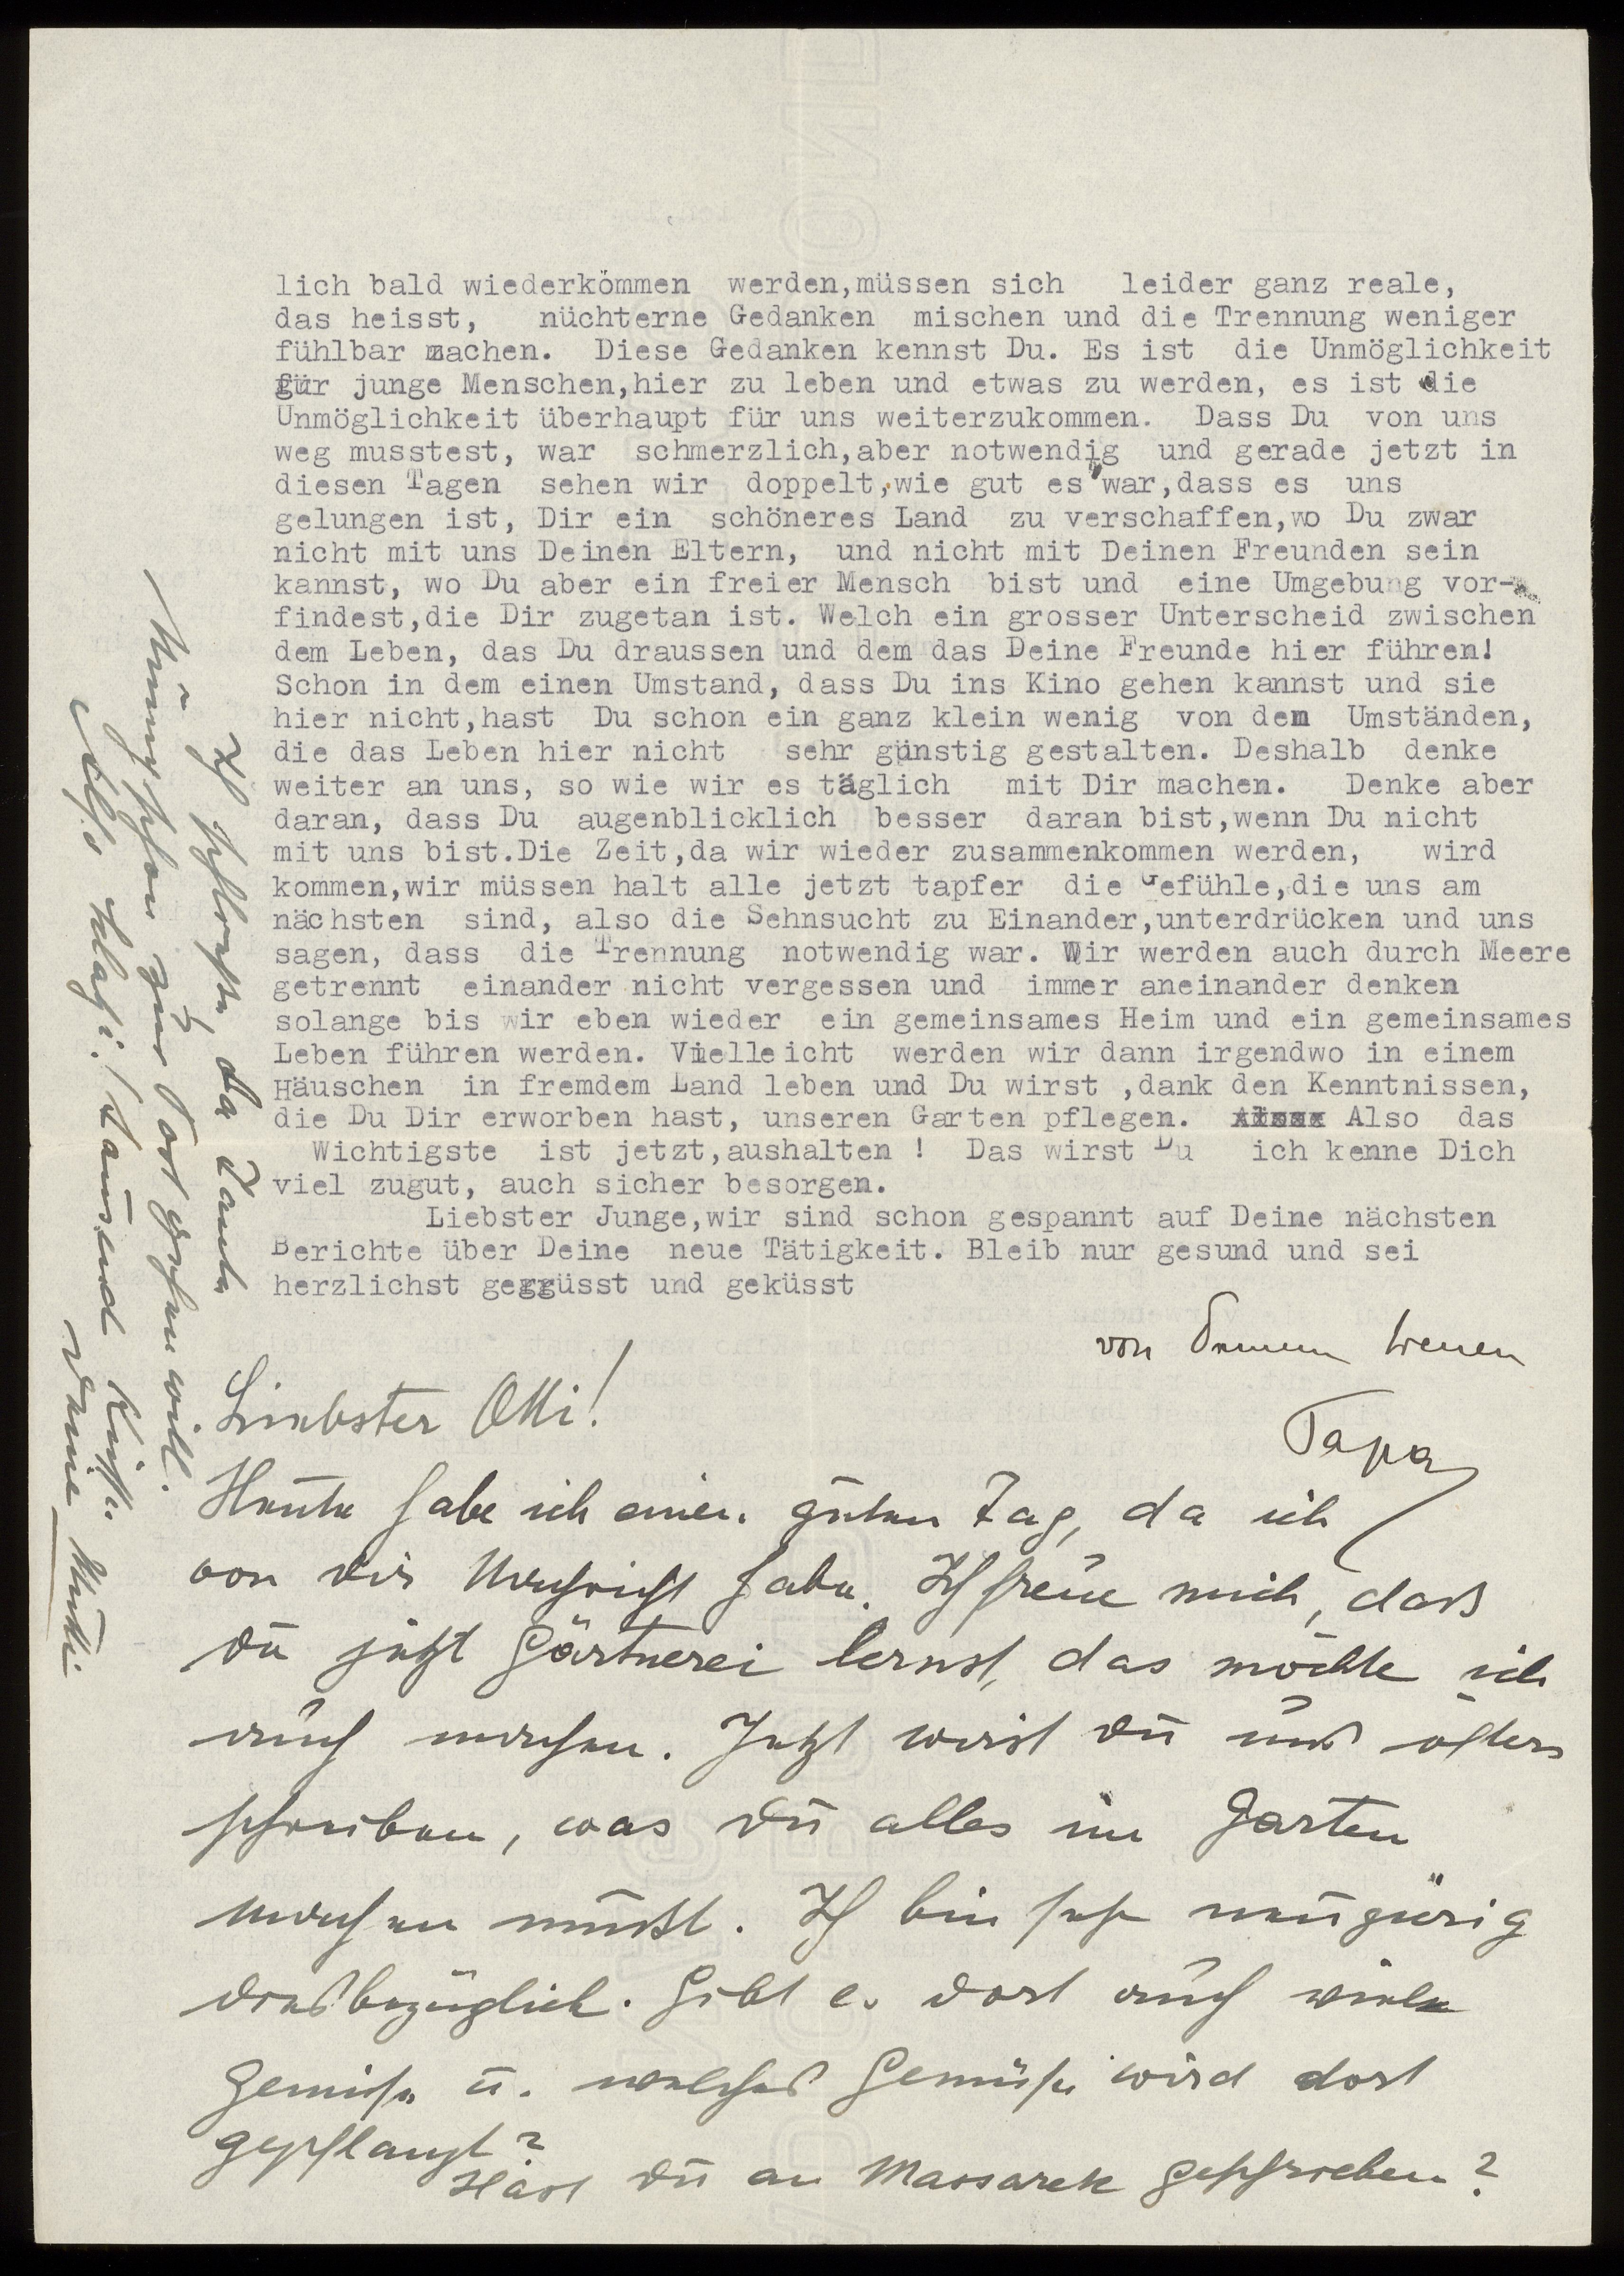 lich bald wiederkömmen werden,müssen sich leider ganz reale,
das heisst, nüchterne Gedanken mischen und die Trennung weniger
fühlbar machen. Diese Gedanken kennst Du. Es ist die Unmöglichkeit
für junge Menschen,hier zu leben und etwas zu werden, es ist die
Unmöglichkeit überhaupt für uns weiterzukommen. Dass Du von uns
weg musstest, war schmerzlich,aber notwendig und gerade jetzt in
diesen Tagen sehen wir doppelt,wie gut es war,dass es uns
gelungen ist, Dir ein schöneres Land zu verschaffen,wo Du zwar
nicht mit uns Deinen Eltern, und nicht mit Deinen Freunden sein
kannst, wo Du aber ein freier Mensch bist und eine Umgebung vor-
findest,die Dir zugetan ist. Welch ein grosser Unterscheid zwischen
dem Leben, das Du draussen und dem das Deine Freunde hier führen!
Schon in dem einen Umstand, dass Du ins Kino gehen kannst und sie
hier nicht,hast Du schon ein ganz klein wenig von den Umständen,
die das Leben hier nicht sehr günstig gestalten. Deshalb denke
weiter an uns, so wie wir es täglich mit Dir machen. Denke aber
daran, dass Du augenblicklich besser daran bist,wenn Du nicht
mit uns bist.Die Zeit,da wir wieder zusammenkommen werden, wird
kommen,wir müssen halt alle jetzt tapfer die Gefühle,die uns am
nächsten sind, also die Sehnsucht zu Einander,unterdrücken und uns
sagen, dass die Trennung notwendig war. Wir werden auch durch Meere
getrennt einander nicht vergessen und immer aneinander denken
solange bis wir eben wieder ein gemeinsames Heim und ein gemeinsames
Leben führen werden. Vielleicht werden wir dann irgendwo in einem
Häuschen in fremdem Land leben und Du wirst ,dank den Kenntnissen,
die Du Dir erworben hast, unseren Garten pflegen. Also das
Wichtigste ist jetzt,aushalten ! Das wirst Du ich kenne Dich
viel zugut, auch sicher besorgen.
Liebster Junge,wir sind schon gespannt auf Deine nächsten
Berichte über Deine neue Tätigkeit. Bleib nur gesund und sei
herzlichst geggüsst und geküsst
von Deinem treuen
Papa
Liebster Otti!
Heute habe ich einen guten Tag, da ich
von dir Nachricht habe. Ich freue mich, dass
du jetzt Gärtnerei lernst, das möchte ich
auch machen. Jetzt wirst du uns öfters
schreiben, was du alles im Garten
machen musst. Ich bin sehr neugierig
diesbezüglich. Gibt es dort auch viele
Gemüse u. welches Gemüse wird dort
gepflanzt?
Hast du an Massarek geschrieben?
Ich schliesse, da Tante
Minny schon zur Post gehen will.
Also Tausend Küsse
Deine Mutti.